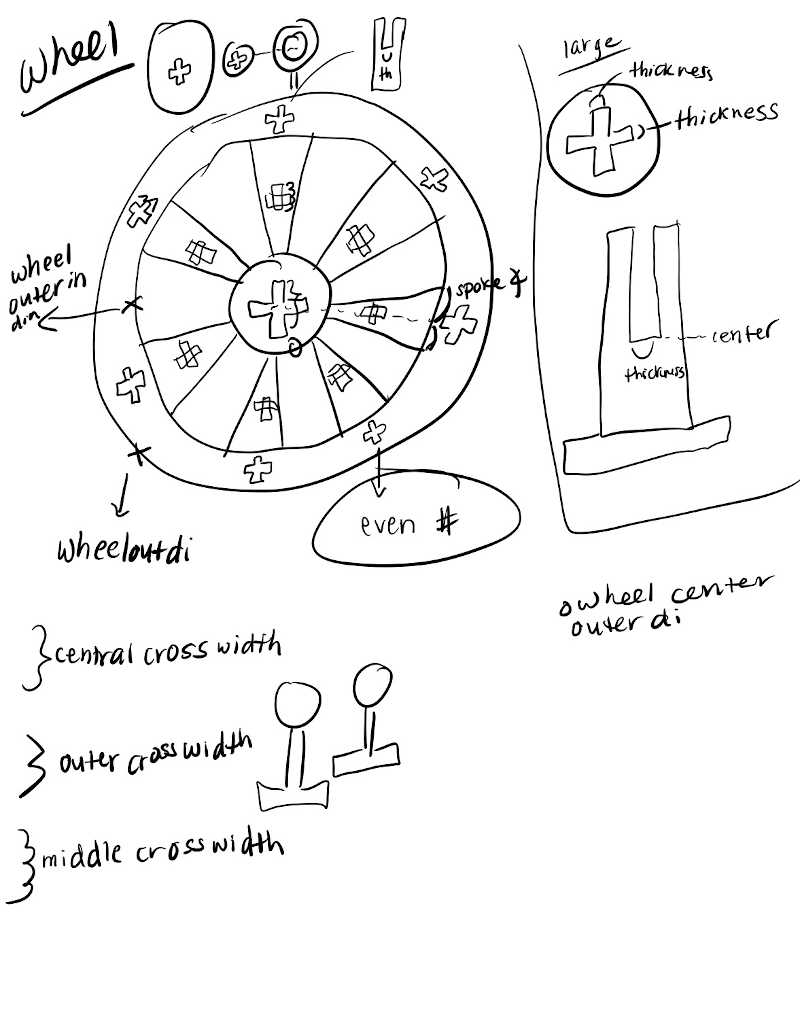 wheel
th
large
thickness
thickness
wheel
outer in
dia
spoke
center
thickness
even #
wheeloutdi
owheel center
outer di
central cross width
outer cross width
middle cross width